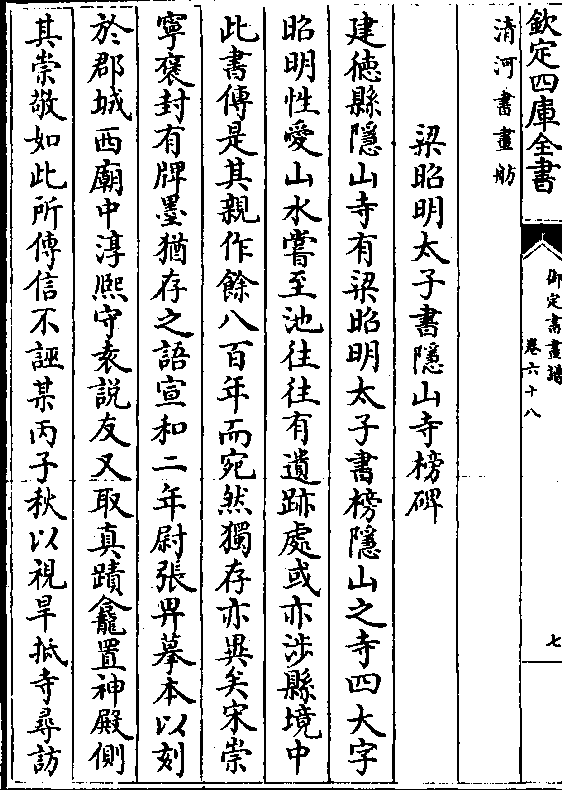 欽定四庫全書
御定書畫譜
卷六十八
七
清河書畫舫
梁昭明太子書隱山寺榜碑
建德縣隱山寺有梁昭明太子書榜隱山之寺四大字
昭明性愛山水嘗至池往往有遺跡處或亦涉縣境中
此書傳是其親作餘八百年而宛然獨存亦異矣宋崇
寧褒封有牌墨猶存之語宣和二年尉張畀摹本以刻
於郡城西廟中淳熙守袁說友又取真蹟龕置神殿側
其崇敬如此所傳信不誣某丙子秋以視旱抵寺尋訪